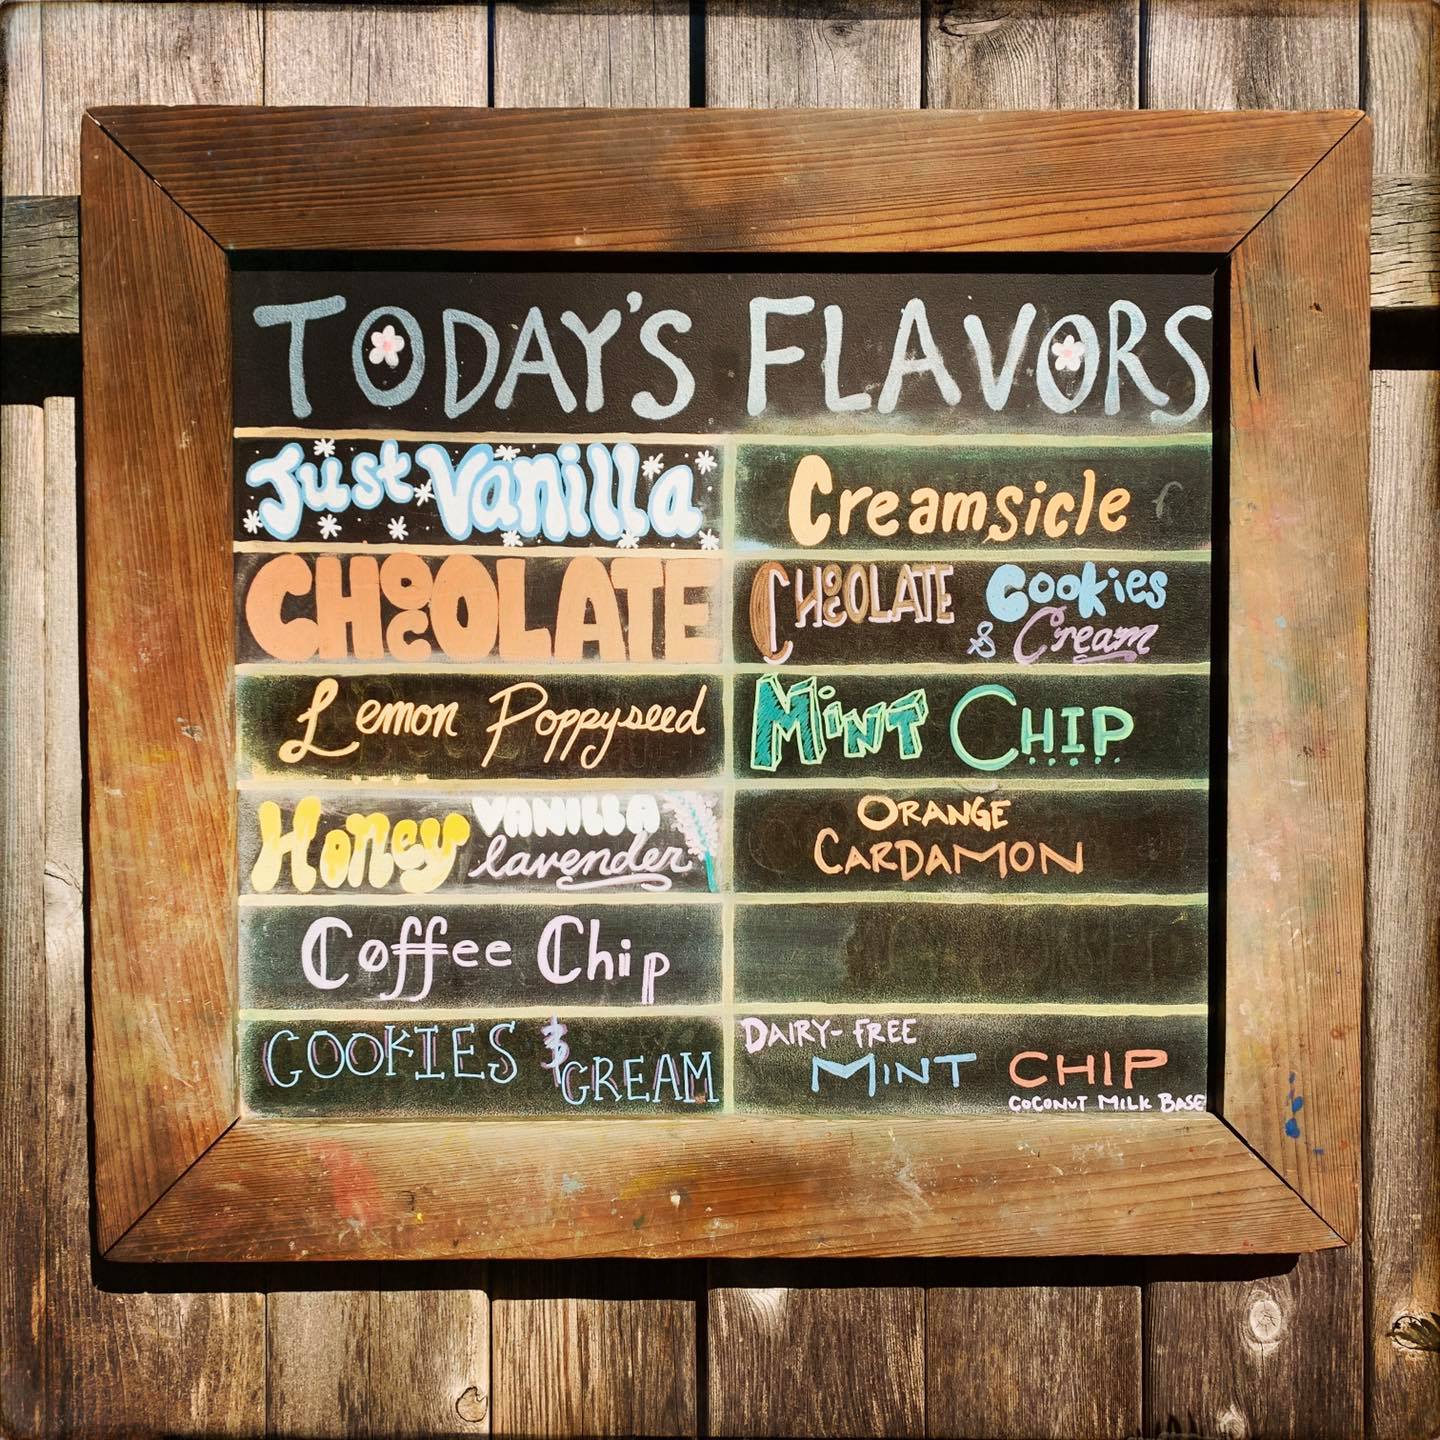 TODAY'S FLAVORS
Just Vanilla
CHOCOLATE
Lemon Poppyseed
Honey VANILLA
lavender
Coffee Chip
COOKIES &
CREAM
Creamsicle
CHOCOLATE Cookies
& Cream
MiNT CHIP
ORANGE
CARDAMON
DAIRY-FREE
MINT CHIP
COCONUT MILK BASE